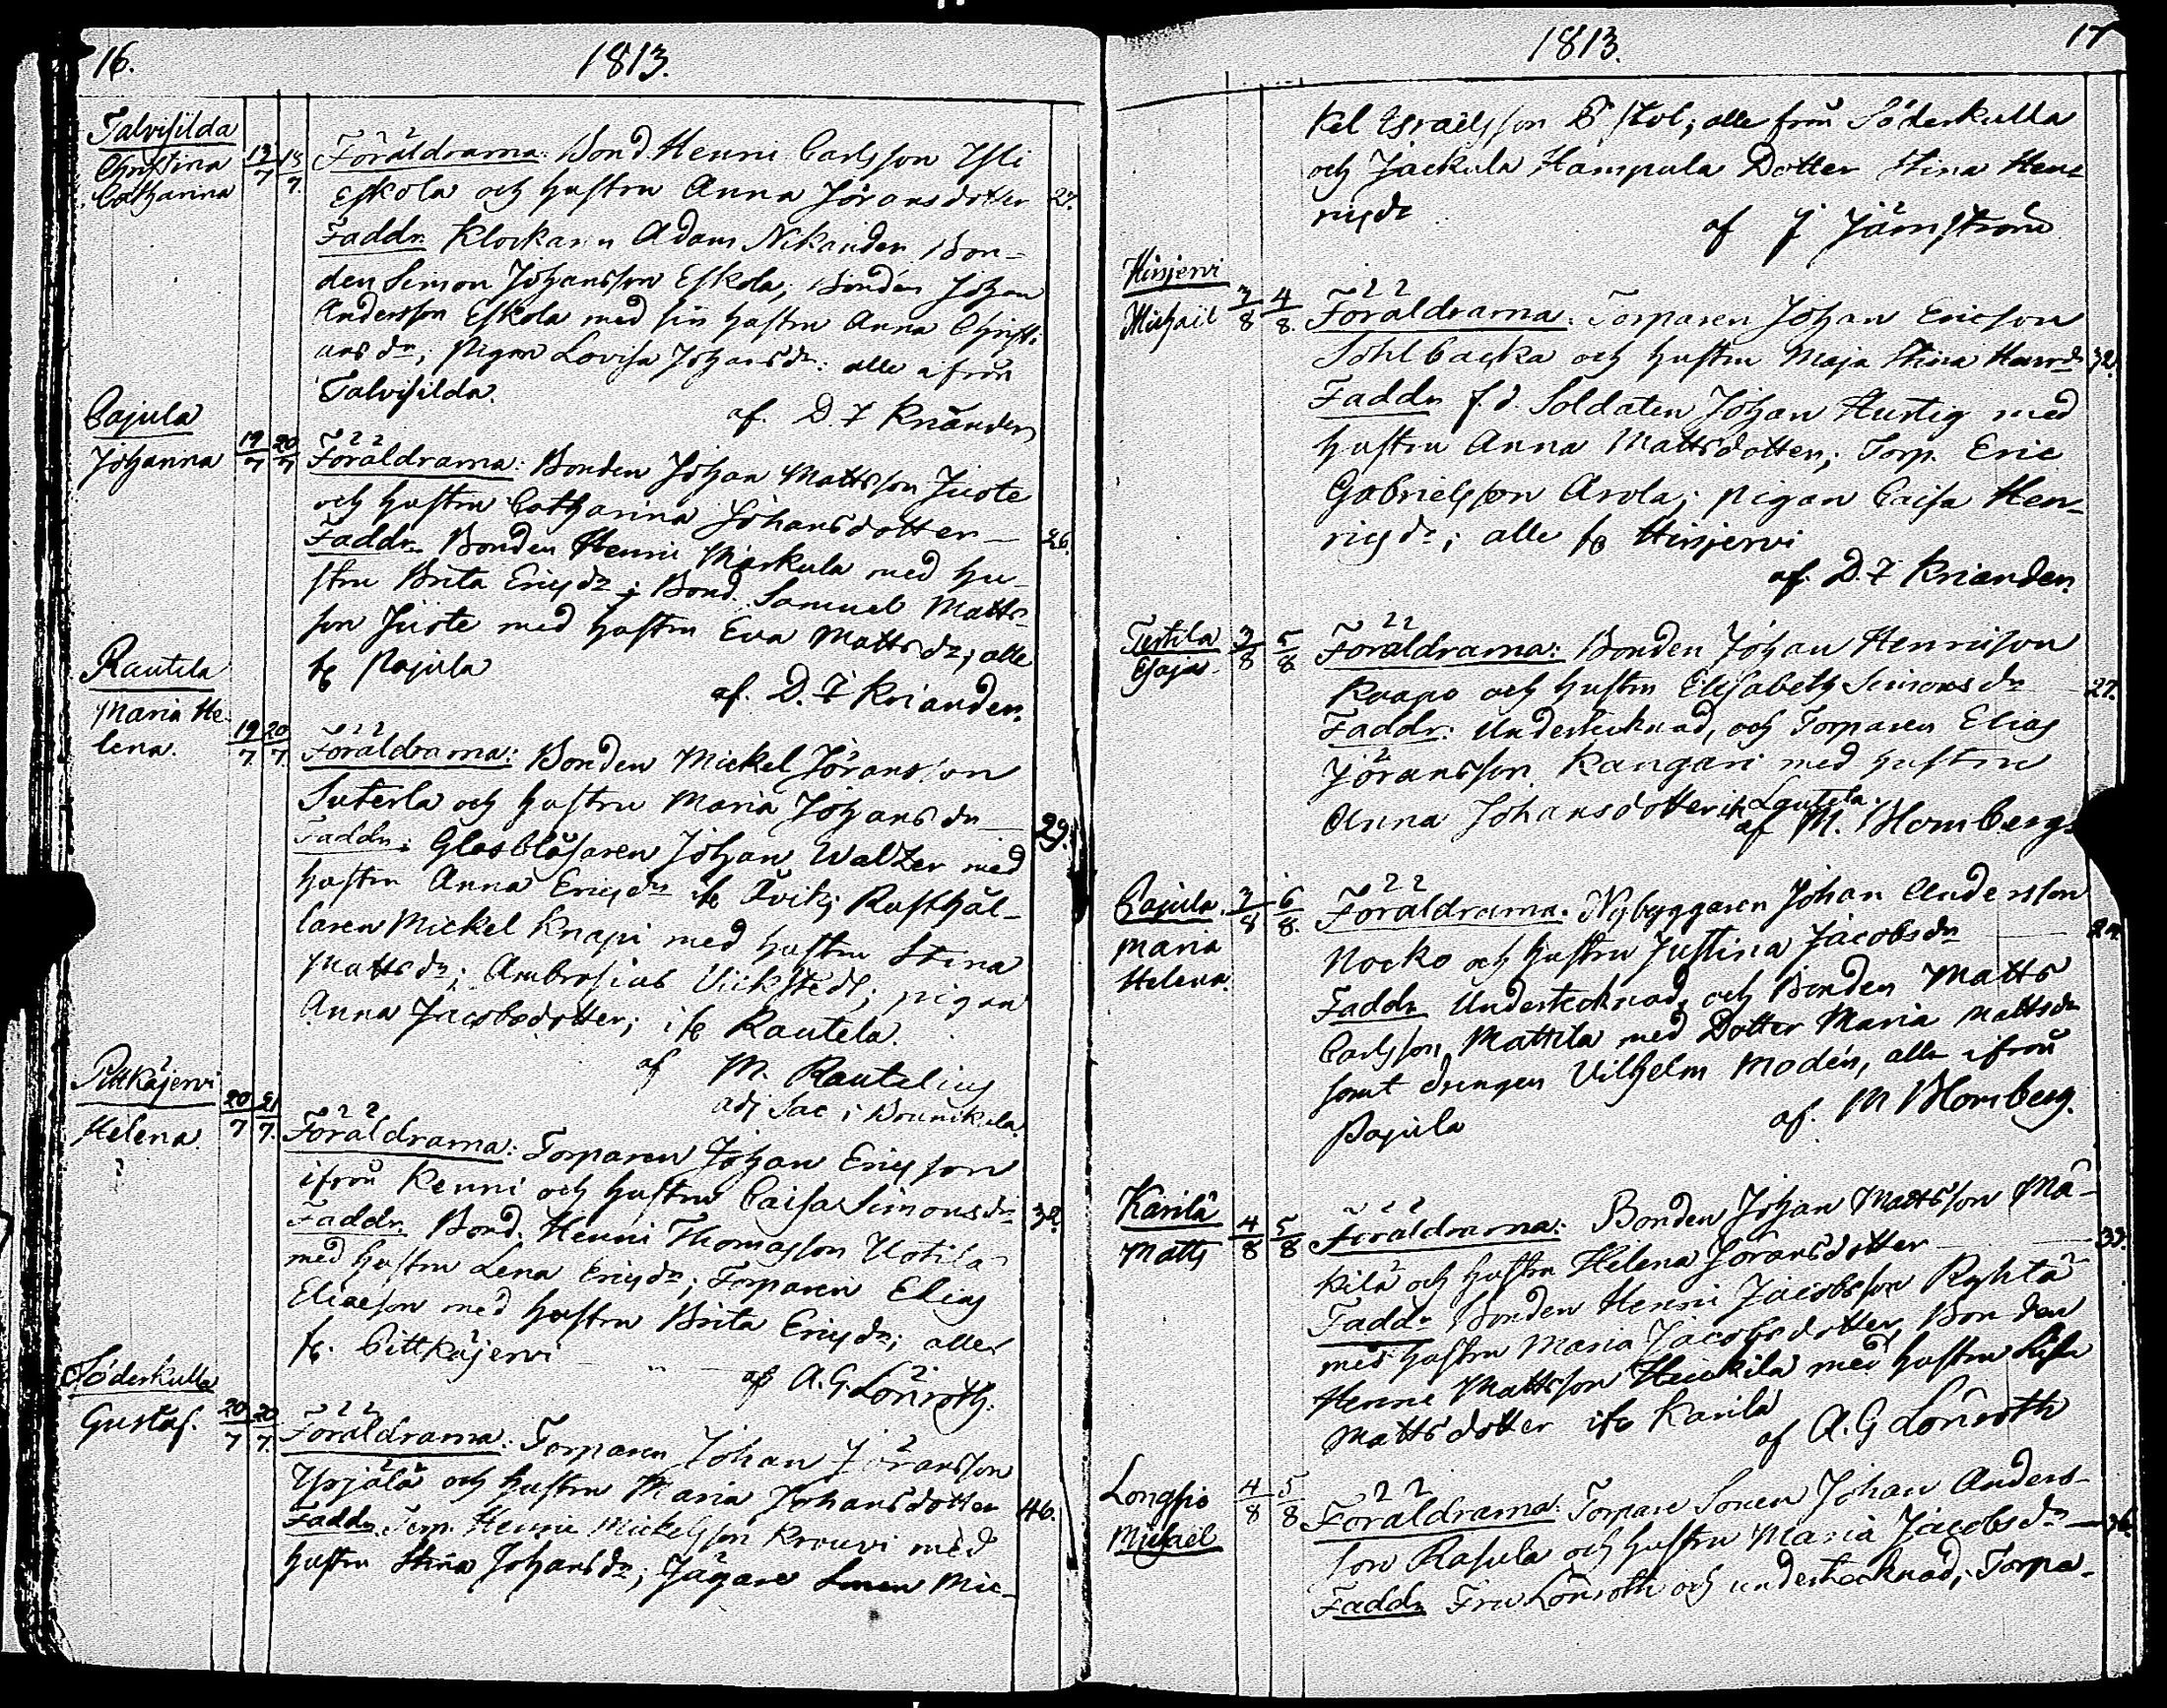 16.
1813.
Talvisilda
Christina
Catharina
13/7 15/7.
Föräldrarna: Bond. Henric Carlsson Yli
Eskola och hustru Anna Jöransdotter 27.
Faddr. Klockaren Adam Nikander, Bon-
den Simon Johansson Eskola, Bonden Johan
Andersson Eskola med sin hustru Anna Christi
ans dr; pigan Lovisa Johansdr: alle ifrån
Talvisilda.
af. D. F Kriander
Cajula
Johanna
19/7 20/7
Föräldrarna: Bonden Johan Mattsson Juote
och hustru Catharina Johansdotter — 26.
Faddr. Bonden Henric Markula med hu-
stru Brita Ericsdr; Bond. Samuel Matts-
son Juote med hustru Eva Mattsdr; alle
fr Pajula
af. D. F Kriander.
Rautela
Maria He-
lena.
19/7 20/7.
Föräldrarna: Bonden Mickel Jöransson
Suterla och hustru Maria Johansdr — 29.
Faddr: Glasblåsaren Johan Walzer med
hustru Anna Ericsdr fr Åvik; Rusthål-
laren Mickel Knapi med hustru Stina
Mattsdr; Ambrosius Vickstedt; pigan
Anna Jacobsdotter; ifr Rautela.
af M. Rautelius
adj Sac i Brunnkala.
Pittkäjervi
Helena.
20/7 21/7.
Föräldrarna: Torparen Johan Ericsson
ifrån Kenni och hustru Caisa Simonsdr 32.
Faddr. Bond. Henric Thomasson Uotila
med hustru Lena Ericsdr; Torparen Elias
Eliaeson med hustru Brita Ericsdr; alle
fr. Pittkäjervi
af A. G. Lönroth.
Söderkulla
Gustaf.
20/7 20/7.
Föräldrarna: Torparen Johan Jöransson
Yrjälä och hustru Maria Johansdotter 46.
Faddr. Torp. Henric Mickelsson Krouvi med
hustru Stina Johansdr; Jägare Sonen Mic-
1813.
17
kel Israelsson Pistol; alle från Söderkulla
och Jackula Hampula Dotter Stina Hen-
ricsdr
af J Järnström
Hirsjervi
Michail
3/8 4/8.
Föräldrarna: Torparen Johan Ericson
Sohlbacka och hustru Maja Stina Henrdr 32.
Faddr f.d. Soldaten Johan Hurtig med
hustru Anna Mattsdotter; Torp. Eric
Gabrielsson Arola; pigan Caisa Hen-
ricsdr; alle fr Hirsjervi
af. D. F Kriander.
Tertila
Esajas.
3/8 5/8
Föräldrarna: Bonden Johan Henricson
Knapo och hustru Elisabeth Simonsdr 27.
Faddr: Undertecknad, och Torparen Elias
Jöransson Kangari med hustru
Anna Johansdotter ifr Lautela.
af M. Blomberg
Cajula.
Maria
Helena.
3/8 6/8.
Föräldrarna: Nybyggaren Johan Andersson
Nocko och hustru Justina Jacobsdr — 24.
Faddr Undertecknad, och Bonden Matts
Carlsson Mattila med Dotter Maria Mattsdr
samt drengen Vilhelm Modén, alle ifrån
Pajula
af. M Blomberg.
Karilä
Matts
4/8 5/8
Föräldrarna: Bonden Johan Mattsson Mä-
kilä och hustru Helena Jöransdotter — 33.
Faddr Bonden Henric Jacobsson Ryhtä
med hustru Maria Jacobsdotter, Bonden
Henric Mattsson Heickilä med hustru Lisa
Mattsdotter ifr Karilä
af A. G Lönroth
Longsjö
Michael
4/8 5/8
Föräldrarna: Torpare Sonen Johan Anders-
son Rasula och hustru Maria Jacobsdr — 36.
Faddr Fru Lönroth och undertecknad, Torpa-